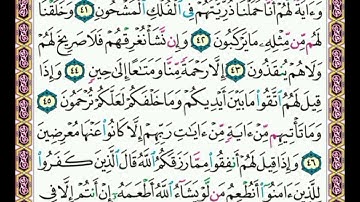 وَءَايَةٌ لَّهُمْ أَنَّا حَمَلْنَا ذُرِّيَّتَهُمْ فِى ٱلْفُلْكِ ٱلْمَشْحُونِ ٤١ وَخَلَقْنَا
لَهُم مِّن مِّثْلِهِۦ مَا يَرْكَبُونَ ٤٢ وَإِن نَّشَأْ نُغْرِقْهُمْ فَلَا صَرِيخَ لَهُمْ
وَلَا هُمْ يُنقَذُونَ ٤٣ إِلَّا رَحْمَةً مِّنَّا وَمَتَٰعًا إِلَىٰ حِينٍ ٤٤ وَإِذَا
قِيلَ لَهُمُ ٱتَّقُوا۟ مَا بَيْنَ أَيْدِيكُمْ وَمَا خَلْفَكُمْ لَعَلَّكُمْ تُرْحَمُونَ ٤٥
وَمَا تَأْتِيهِم مِّنْ ءَايَةٍ مِّنْ ءَايَٰتِ رَبِّهِمْ إِلَّا كَانُوا۟ عَنْهَا مُعْرِضِينَ
٤٦ وَإِذَا قِيلَ لَهُمْ أَنفِقُوا۟ مِمَّا رَزَقَكُمُ ٱللَّهُ قَالَ ٱلَّذِينَ كَفَرُوا۟
لِلَّذِينَ ءَامَنُوٓا۟ أَنُطْعِمُ مَن لَّوْ يَشَآءُ ٱللَّهُ أَطْعَمَهُۥٓ إِنْ أَنتُمْ إِلَّا فِى